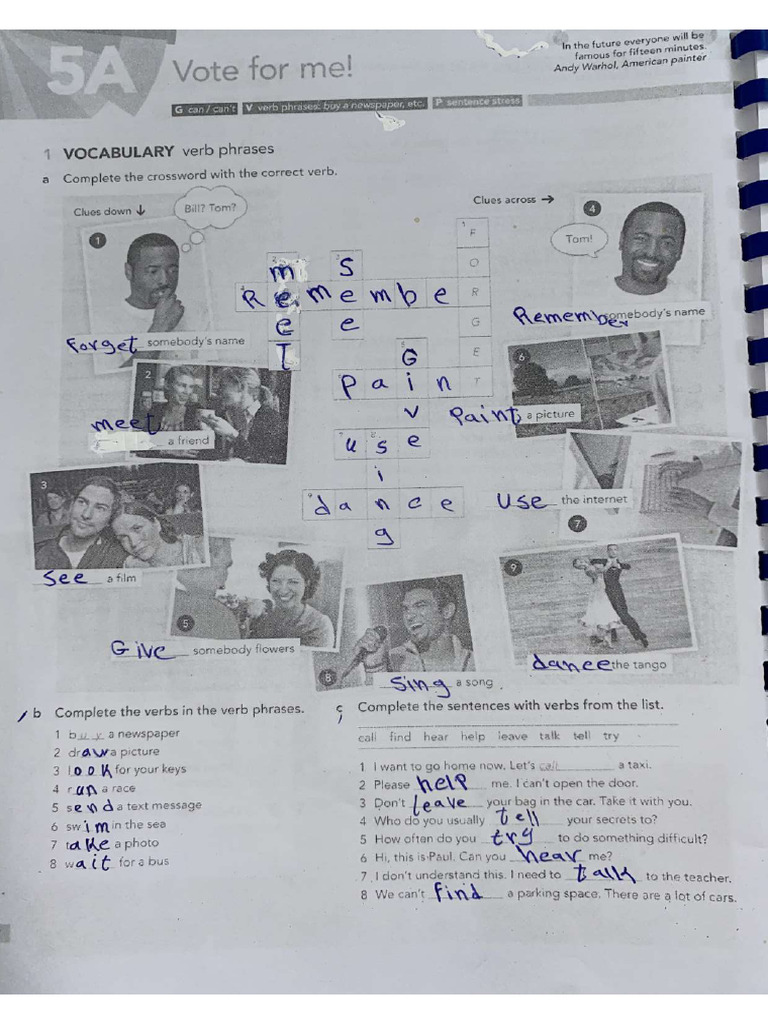 5A Vote for me!
In the future everyone will be
famous for fifteen minutes.
Andy Warhol, American painter
G can / can't V verb phrases: buy a newspaper, etc. P sentence stress
1 VOCABULARY verb phrases
a Complete the crossword with the correct verb.
Clues down ↓
Bill? Tom?
Clues across →
1
4
Tom!
1 F
O
R
G
E
T
2 m
e
e
T
3 S
e
e
4 R e m e m b e R
5 G
i
v
e
6 P a i n T
7 u s e
8 s
i
n
g
9 d a n c e
Forget somebody's name
Remember somebody's name
2
meet a friend
6
Paint a picture
3
see a film
use the internet
7
5
Give somebody flowers
8
Sing a song
9
dance the tango
b Complete the verbs in the verb phrases.
1 buy a newspaper
2 draw a picture
3 look for your keys
4 run a race
5 send a text message
6 swim in the sea
7 take a photo
8 wait for a bus
c Complete the sentences with verbs from the list.
call find hear help leave talk tell try
1 I want to go home now. Let's call a taxi.
2 Please help me. I can't open the door.
3 Don't leave your bag in the car. Take it with you.
4 Who do you usually tell your secrets to?
5 How often do you try to do something difficult?
6 Hi, this is Paul. Can you hear me?
7 I don't understand this. I need to talk to the teacher.
8 We can't find a parking space. There are a lot of cars.